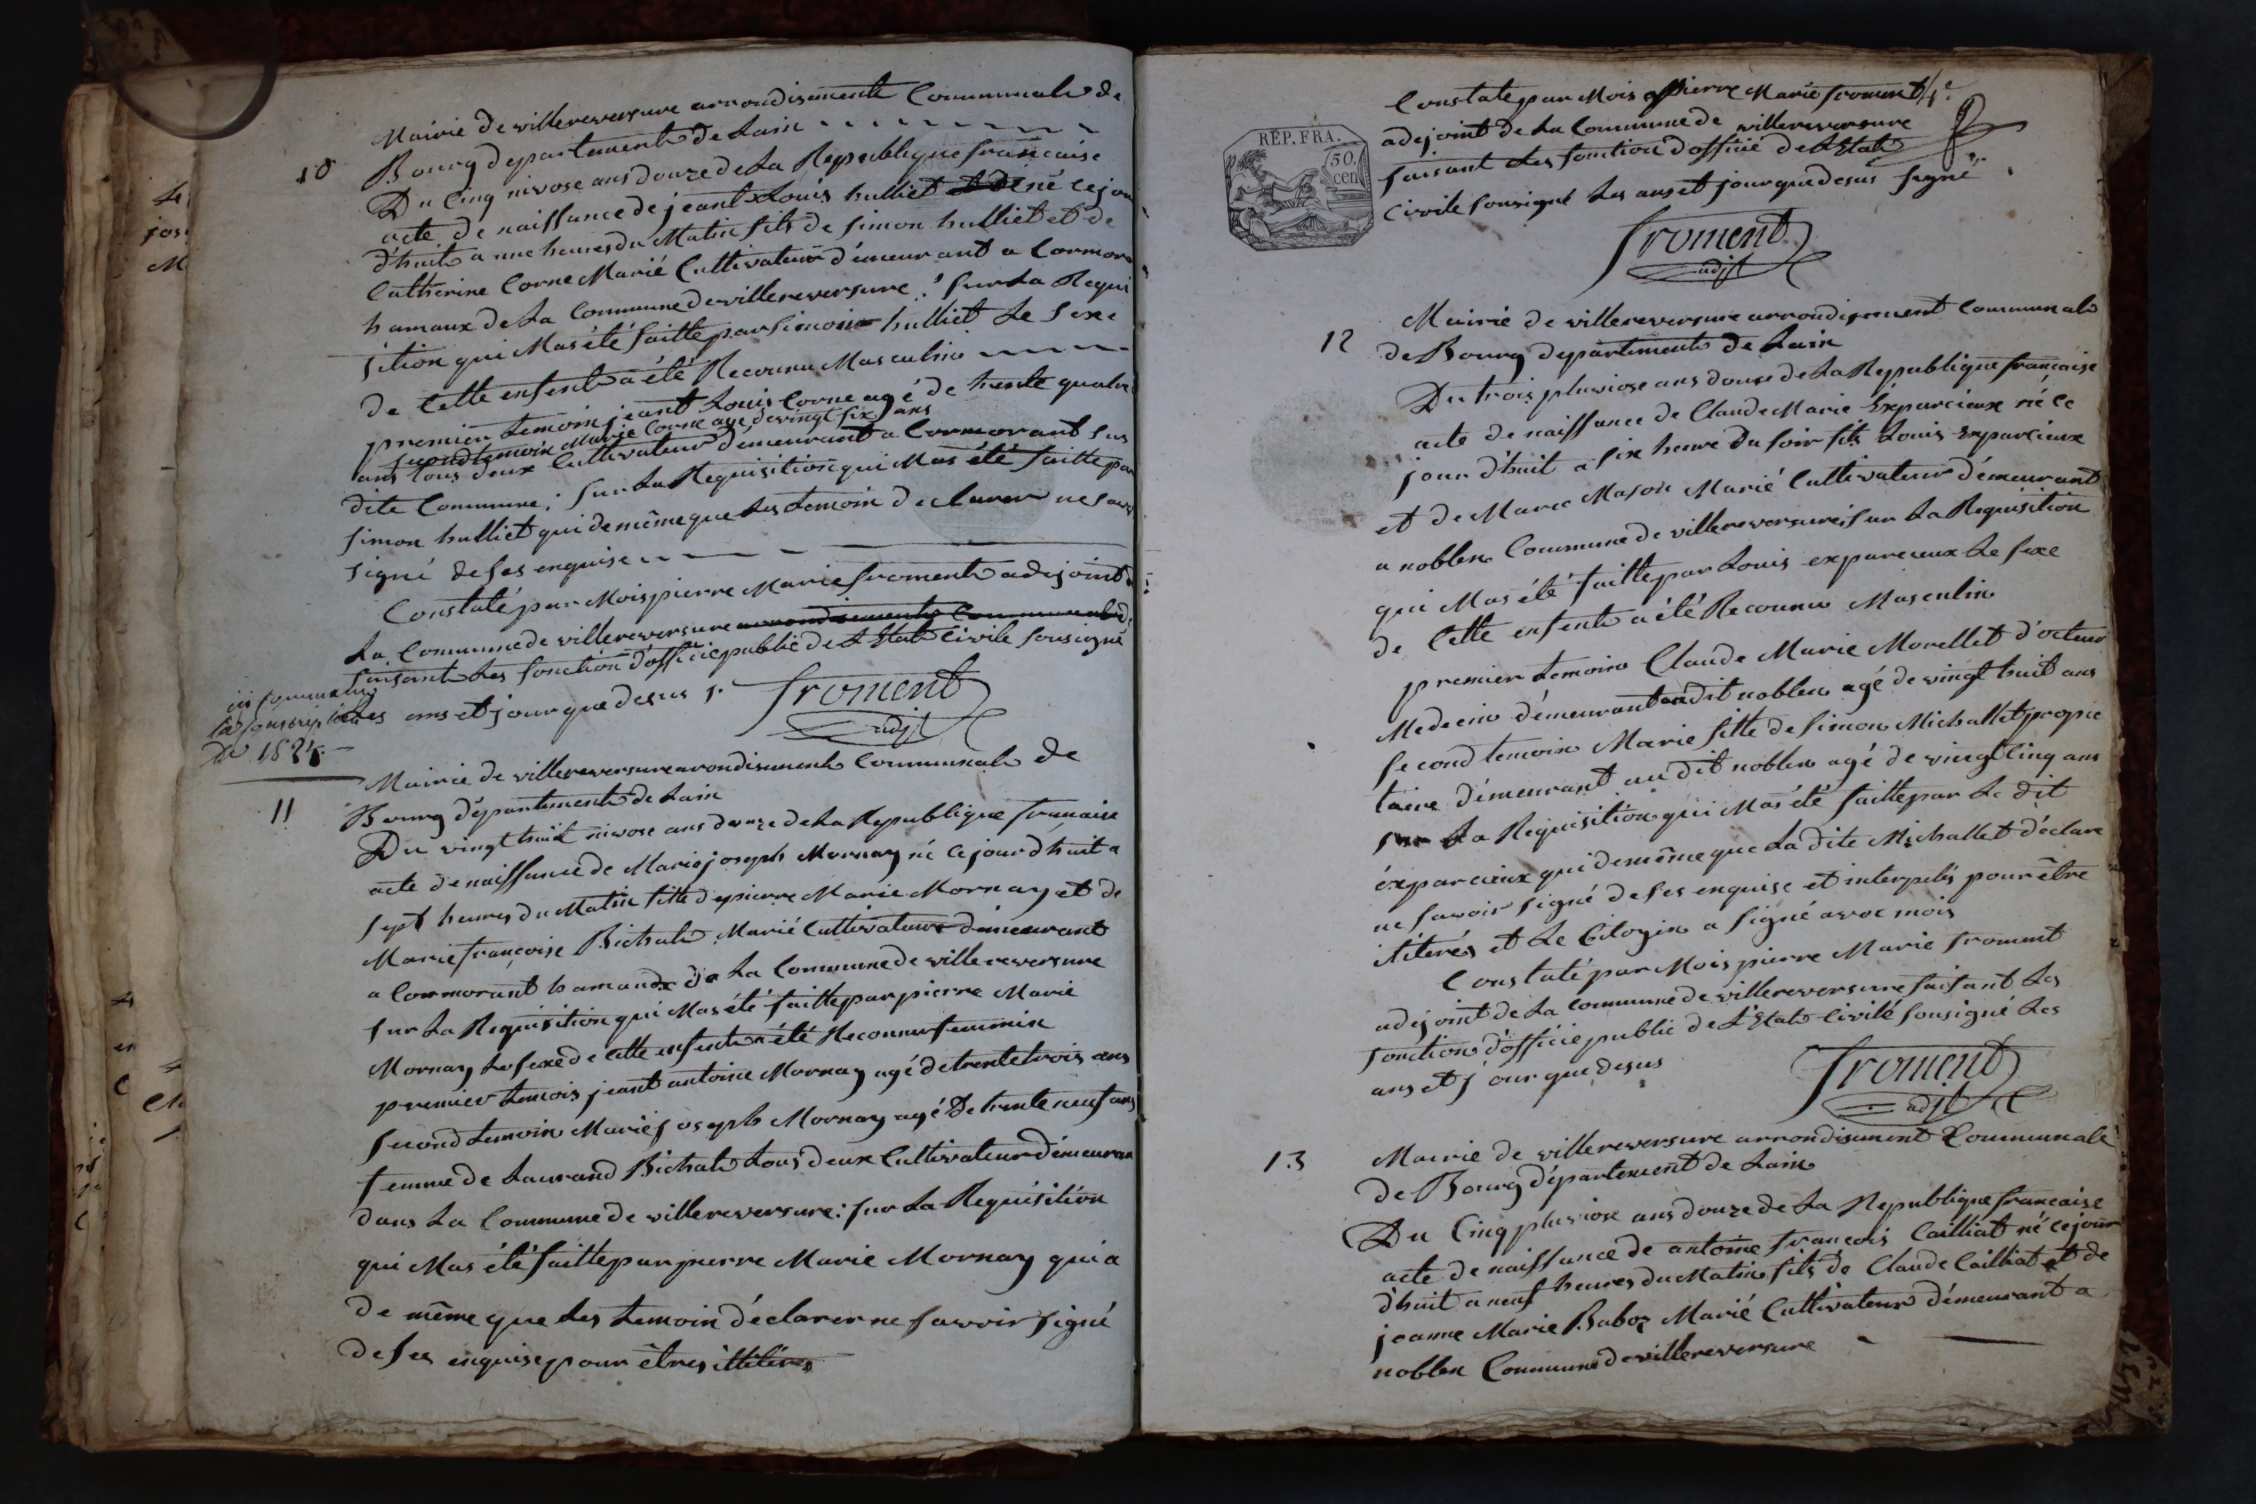 10
Mairie de villereversure arrondisement Communale de
Bourg departement de Lain
Du Cinq nivose ans douze de La Republique francaise
acte de naissance de jeant Louis hulliet né ce jour
d'huit a une heures du Matin fils de simon hulliet et de
Catherine Corne Marié Cultivateur démeurant a Cormoran
hamaux de La Commune de villereversure ; sur La Requi
sition qui Mas été faitte par simon hulliet Le sexe
de Cette enfent a été Reconnu Masculin
premier temoin jeant Louis Corne agé de trente quatre
second temoin Marie Corne agé de vingt six ans
ans tous deux Cultivateur démeurant a Cormorant sus
dite Commune ; sur La Requisition qui Mas été faitte par
simon hulliet qui de même que Les temoin declarer ne savoir
signé de ses enquise
Constaté par Mois pierre Marie froment adejoint de
La Commune de villereversure arrondisement Communale de
faisant Les fonction d'officie public de L'Etat Civile sousigné
Les ans et jour que desus s.
froment
adjt
ici commence
la conscription
de 1824
11
Mairie de villereversure arrondisement Communale de
Bourg département de Lain
Du vingt huit nivose ans douze de La Republique francaise
acte de naissance de Marie joseph Mornay né Ce jour d'huit a
sept heures du Matin fille de pierre Marie Mornay et de
Marie françoise Bichate Marié Cultivateur démeurant
a Cormorant hamaux de La Commune de villereversure
sur La Requisition qui Mas été faitte par pierre Marie
Mornay Le sexe de Cette enfent a été Reconnu feminin
premier temois jeant antoine Mornay agé de trente trois ans
second temoin Marie joseph Mornay agé de trente neuf ans
femme de Laurand Bichate tous deux Cultivateur démeurant
dans La Commune de villereversure : sur La Requisition
qui Mas été faitte par pierre Marie Mornay qui a
de même que Les temoin déclarer ne savoir signé
de ses enquise pour êtres illitérés
REP. FRA.
50.
cen
Constate par Mois pierre Marie froment
adejoint de La Commune de villereversure
faisant Les fonction d'officié de L'Etat
Civile sousigné Les ans et jour que desus signé
froment
adjt
12
Mairie de villereversure arrondisement Communale
de Bourg departement de Lain
Du trois pluviose ans douze de La Republique francaise
acte de naissance de Claude Marie Exparcieux né Ce
jour d'huit a six heure du soir fils Louis Exparcieux
et de Marie Mason Marié Cultivateur démeurant
a noblen Commune de villereversure ; sur La Requisition
qui Mas été faitte par Louis exparcieux Le sexe
de Cette enfent a été Reconnu Masculin
premier temoin Claude Marie Morellet d'octeur
Medecin démeurant au dit noblen agé de vingt huit ans
second temoin Marie fille de simon Michallet proprie
taire démeurant au dit noblen agé de vingt Cinq ans
sur La Requisition qui Mas été faitte par Le dit
éxparcieux qui de même que La dite Michallet déclare
ne savoir signé de ses enquise et interpelés pour être
illiterés et Le Citoyin a signé avec mois
Constaté par Mois pierre Marie froment
adejoint de La Commune de villereversure faisant Les
fonction d'officie public de L'Etat Civilé sousigné Les
ans et jour que desus
froment
adjt
13
Mairie de villereversure arrondisement Communale
de Bourg département de Lain
Du Cinq pluviose ans douze de La Republique francaise
acte de naissance de antoine francois Cailliat né ce jour
d'huit a neuf heures du Matin fils de Claude Cailliat et de
jeanne Marie Baboz Marié Cultivateur démeurant a
noblen Commune de villereversure